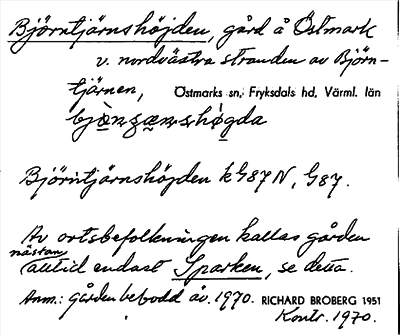 Björntjärnshöjden, gård å Östmark
v. nordvästra stranden av Björn-
tjärnen, Östmarks sn, Fryksdals hd, Värml. län
Björntjärnshöjden k G87 N, G87.
Av ortsbefolkningen kallas gården
nästan
alltid endast Sparken, se detta.
Anm.: gården bebodd äv. 1970. RICHARD BROBERG 1951
Kontr. 1970.